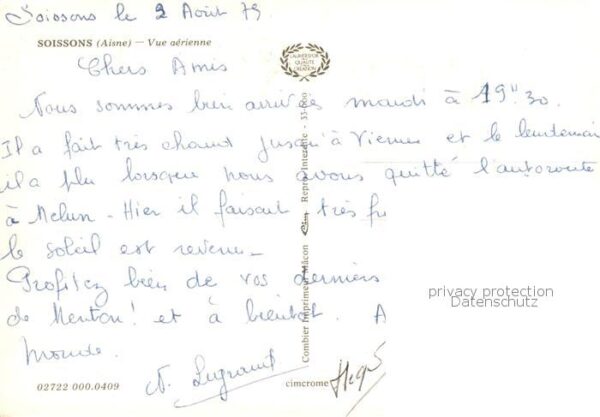 Soissons le 2 Août 79
SOISSONS (Aisne) — Vue aérienne
LAURÉAT D'OR DE LA QUALITÉ DE LA CRÉATION
Chers Amis
Nous sommes bien arrivés mardi à 19h30.
Il a fait très chaud jusqu'à Vienne et le lendemain
il a plu lorsque nous avons quitté l'autoroute
à Melun - Hier il faisait très
le soleil est revenu -
Profitez bien de vos derniers
de Menton! et à bientôt. A
monde.
N. Legrand
privacy protection
Datenschutz
Combier Imprimeur Mâcon Cim Repro. Interdite - 33-000
02722 000.0409
cimcrome